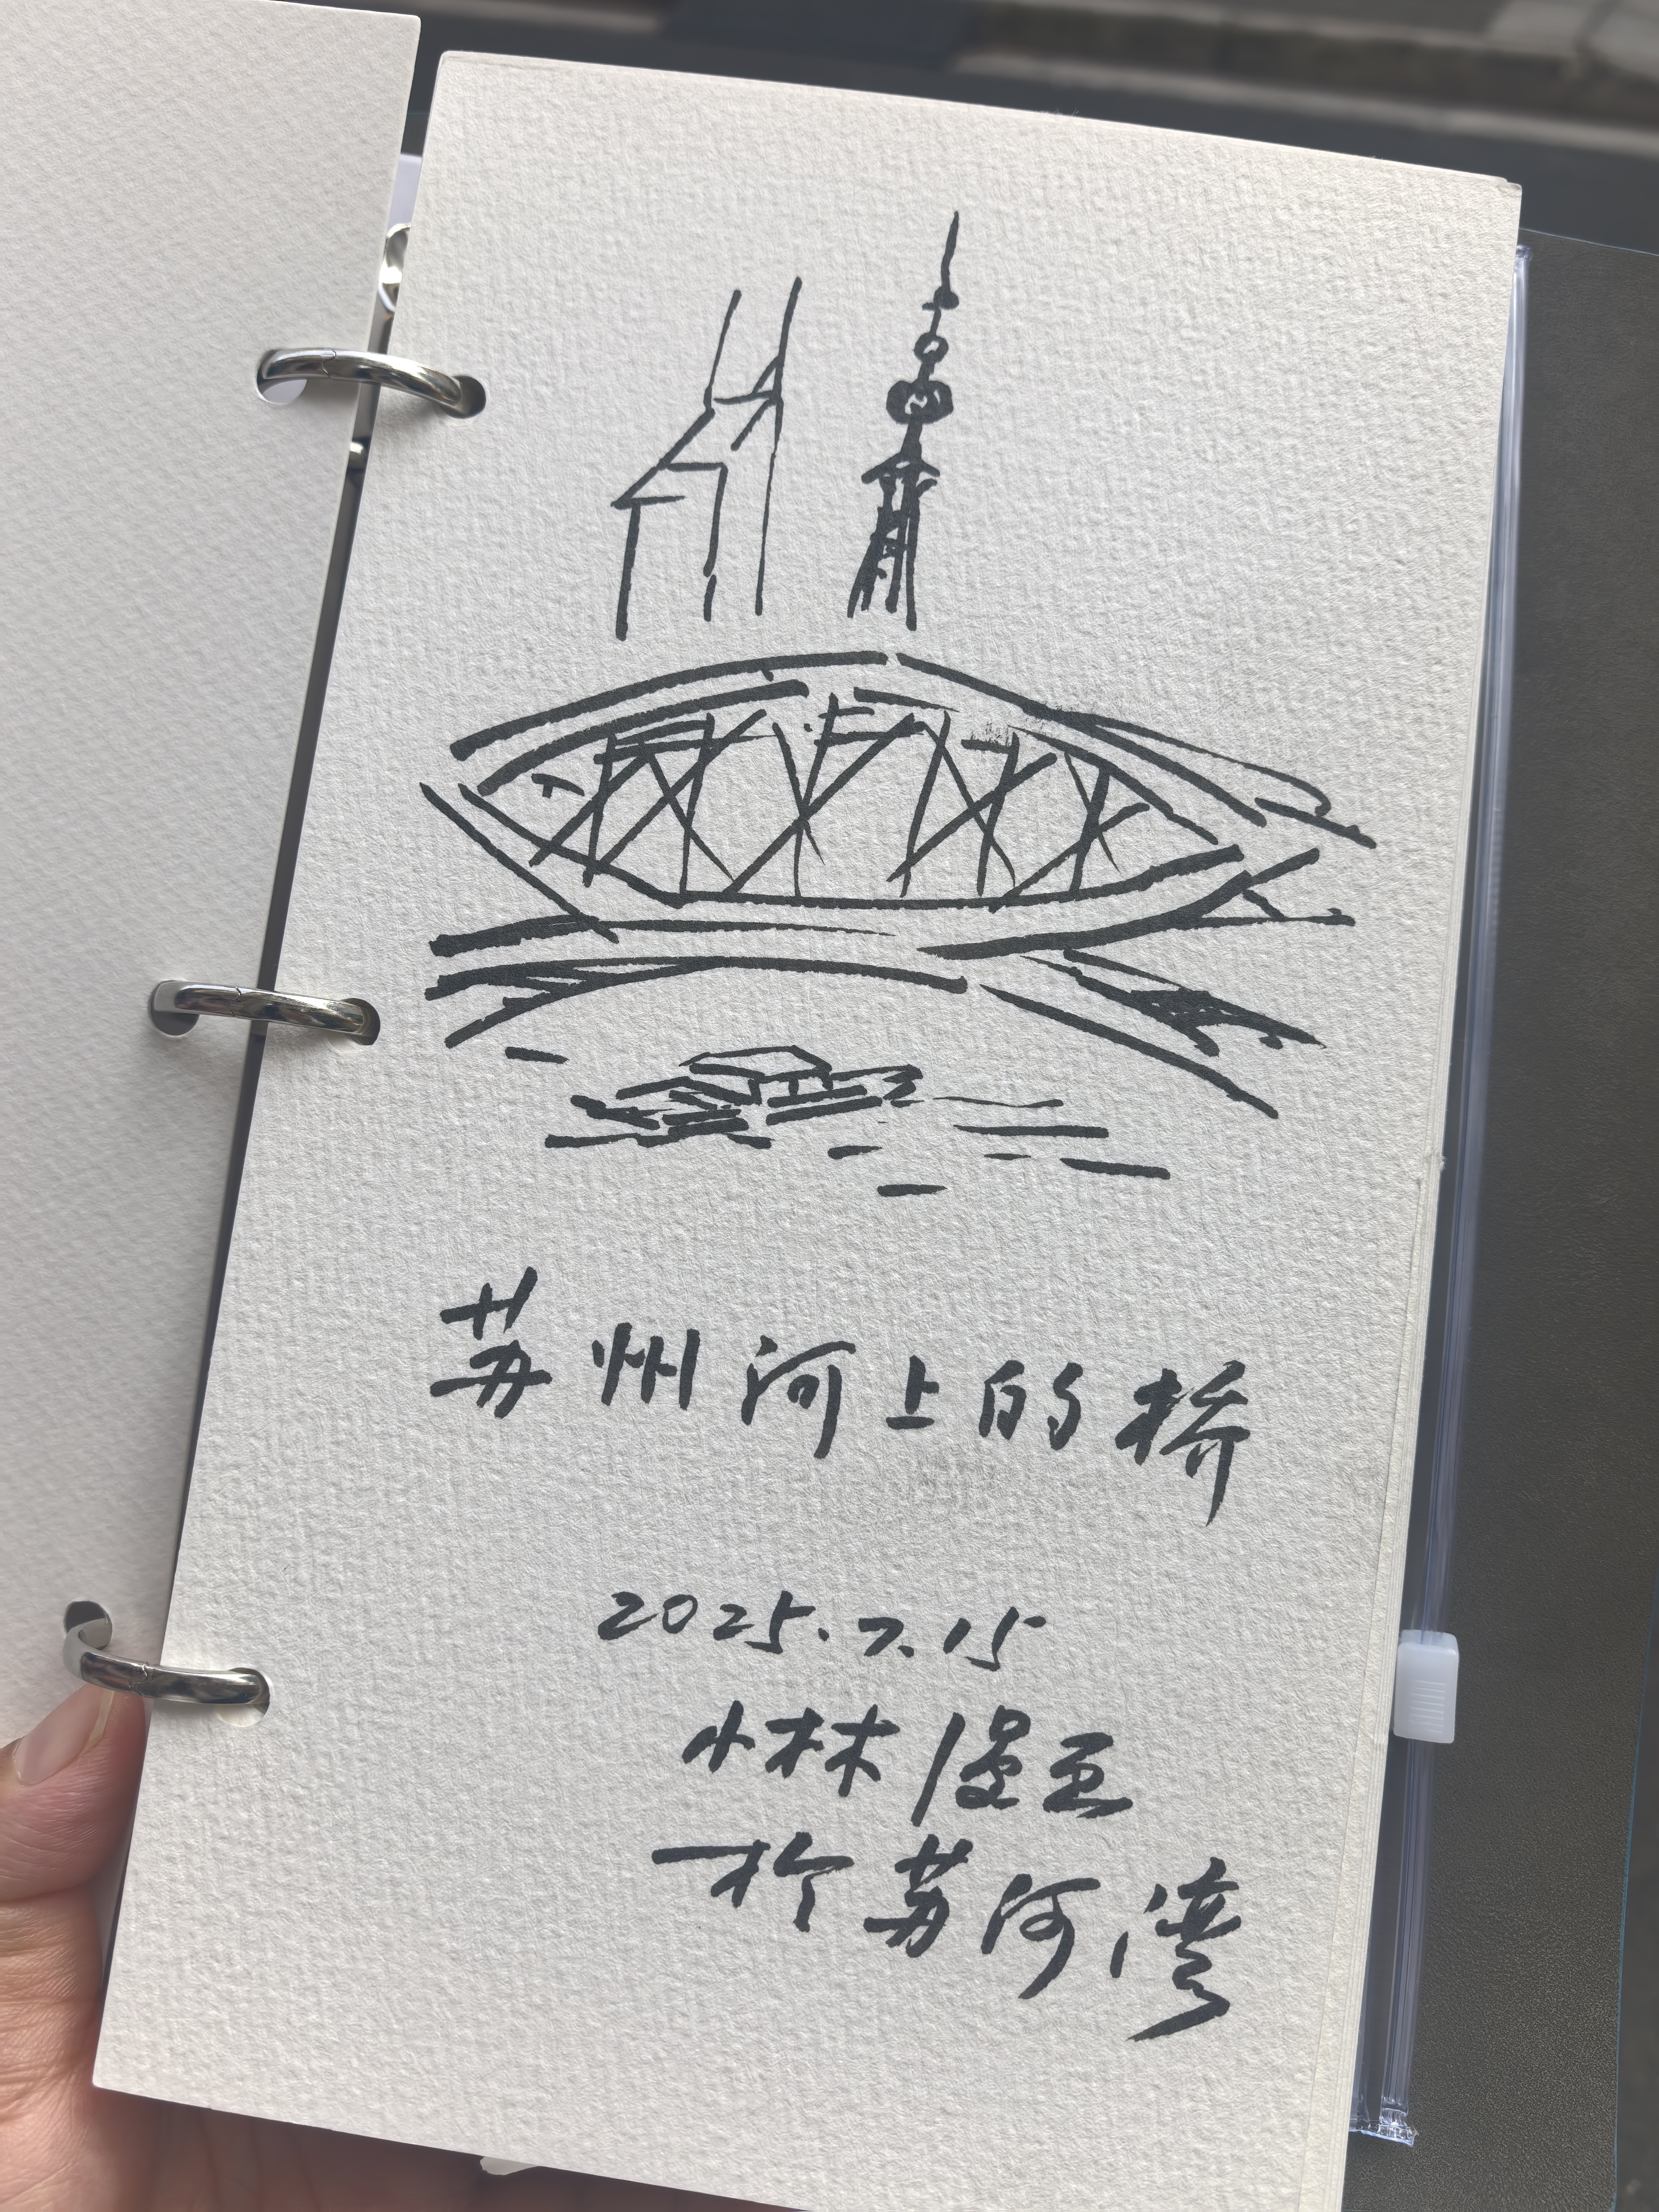 苏州河上的桥
2025.7.15
小林漫画
于苏河湾